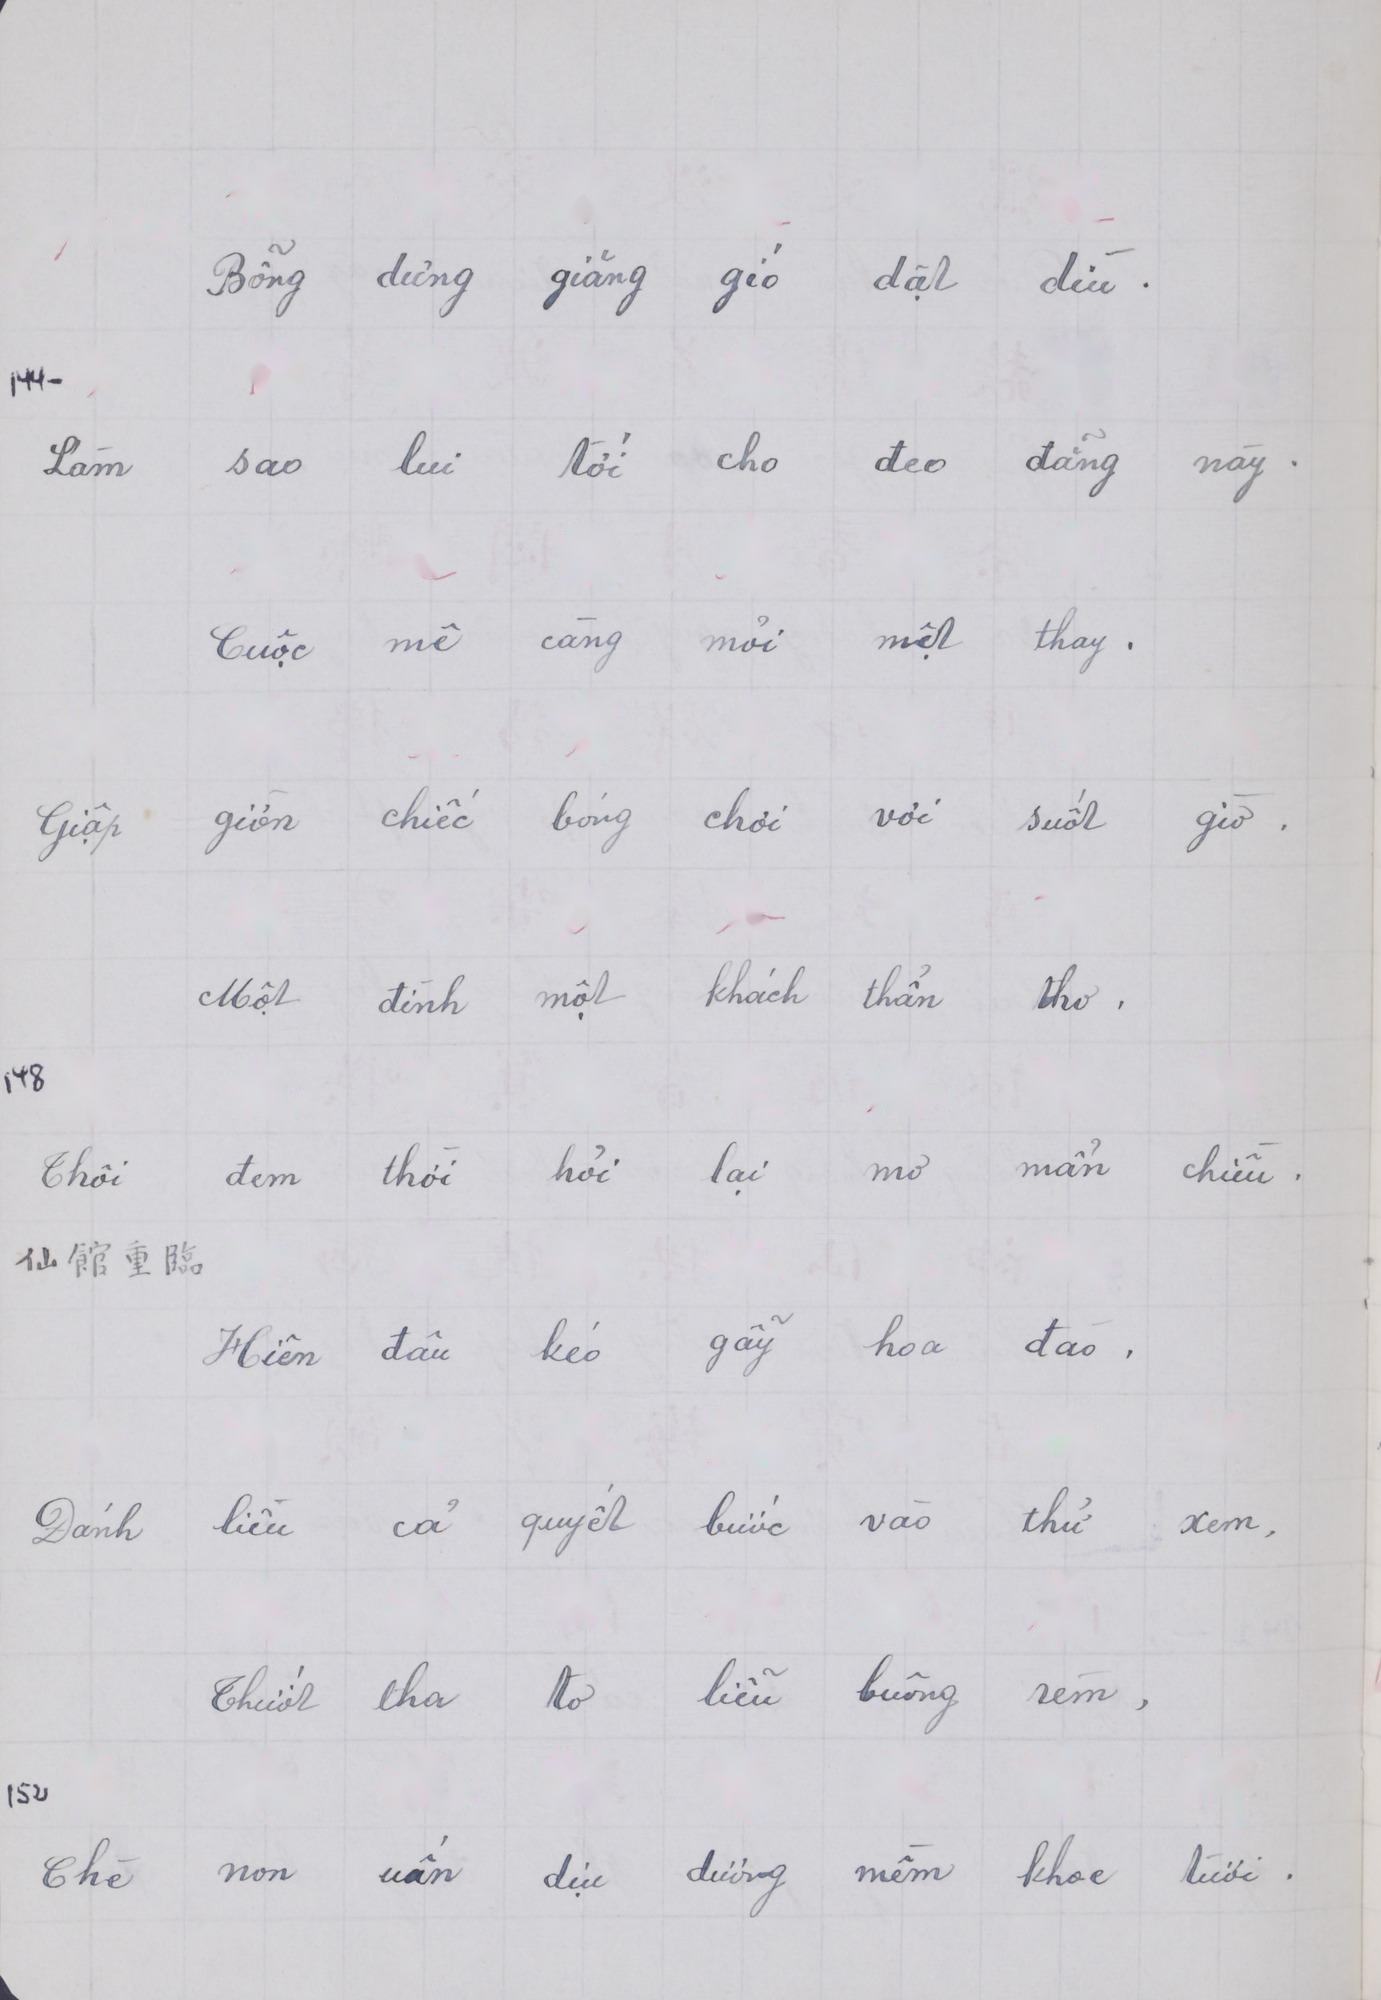 Bỗng dưng giăng gió dặt dìu.
144-
Làm sao lui tới cho đeo đẵng này.
Cuộc mê càng mỏi mệt thay.
Giập giờn chiếc bóng chơi vơi suốt giờ.
Một đình một khách thẩn thơ.
148
Thôi đem thói hỏi lại mơ mẩn chiều.
仙館重臨
Hiên đâu kéo gẫy hoa đào.
Đánh liều cả quyết bước vào thử xem.
Thướt tha tơ liễu buông rèm,
152
Chè non uấn dịu dường mềm khoe tươi.